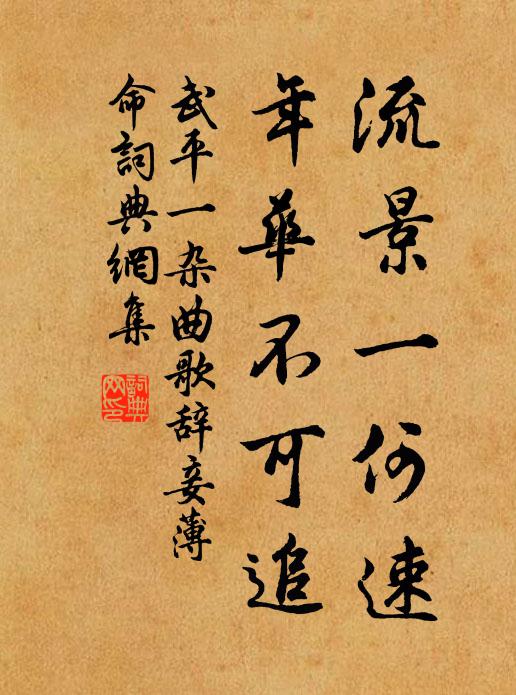 流景一何速
年華不可追
武平一杂曲歌辞妾薄
命詞典網集
詞典
网印